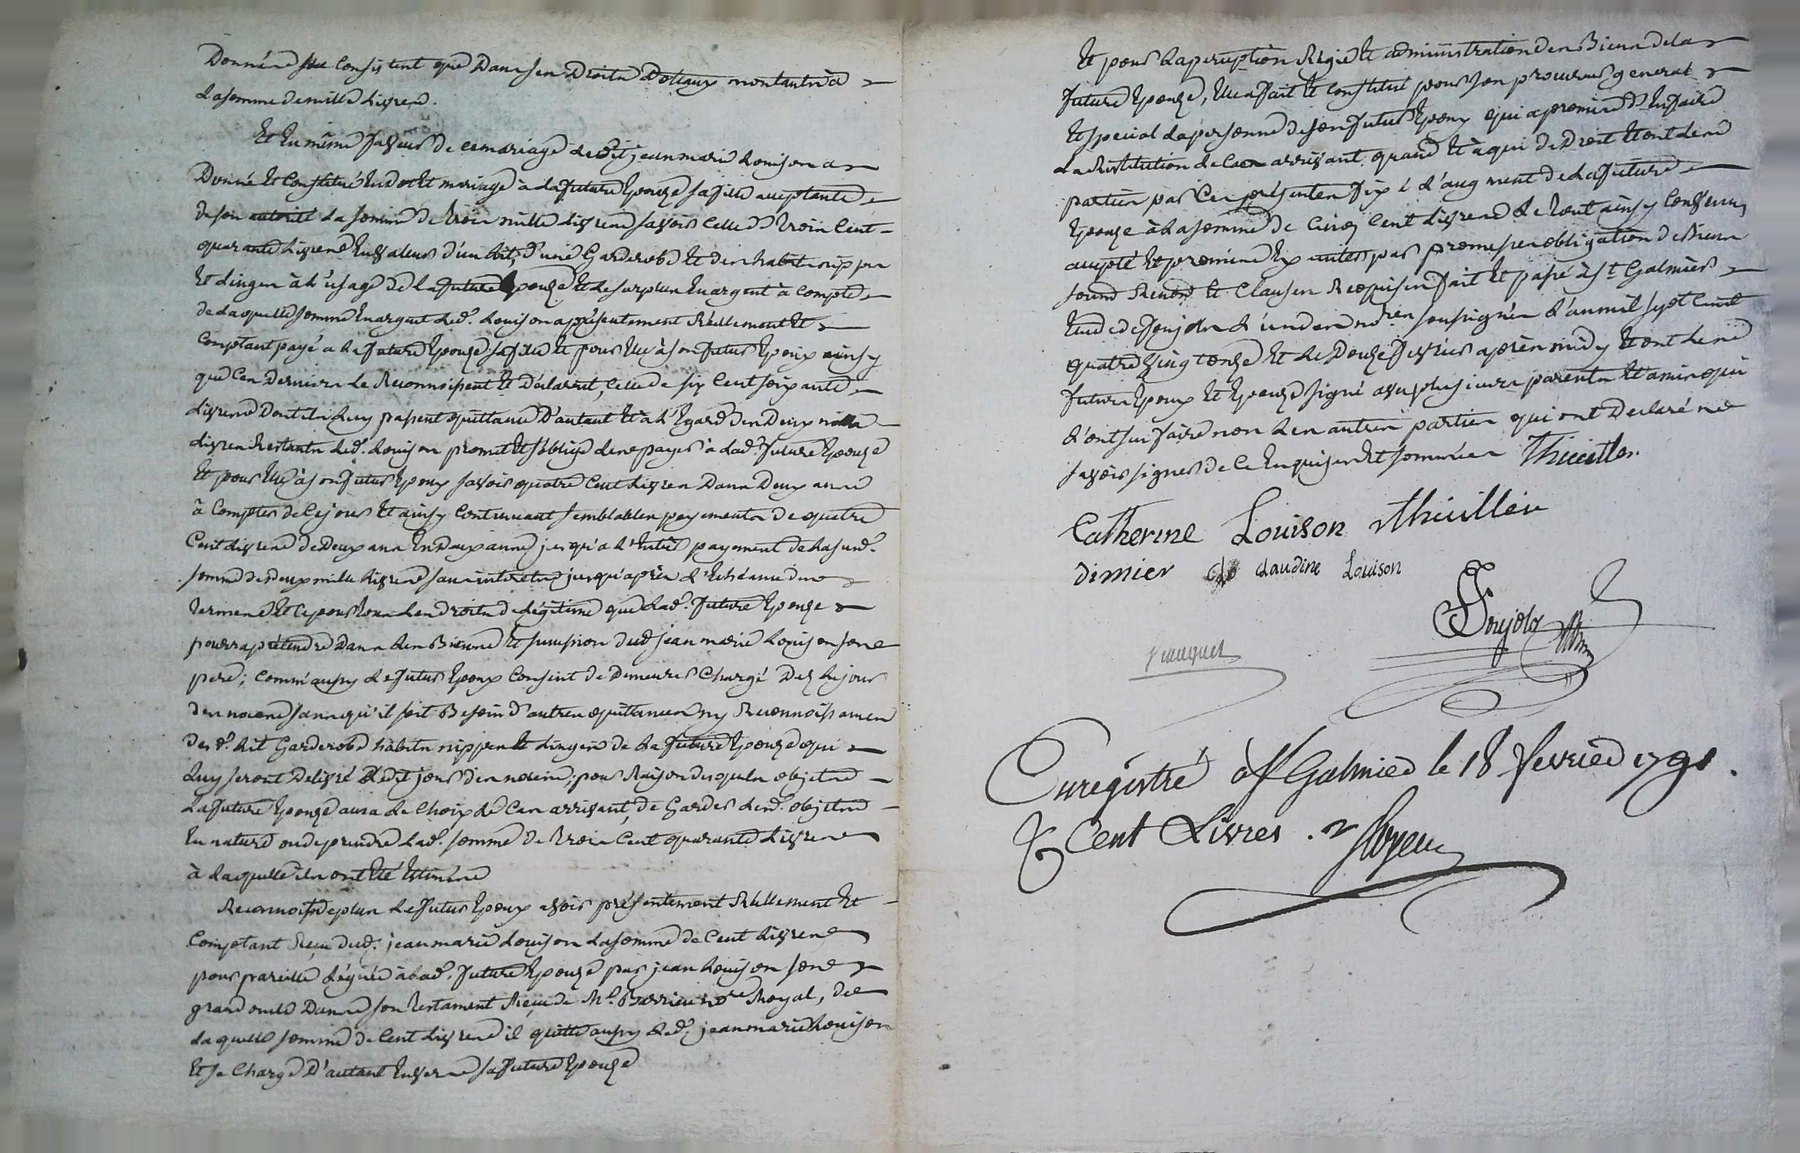 Donnés ne consistent que dans ses droits dotaux montants à
la somme de mille livres.
Et en même faveur de ce mariage ledit jean marie Louison a
Donné et constitué en dot et mariage à la future Epouze sa fille acceptante
de son autorité la somme de trois mille livres savoir celle de trois cent
quarante livres en valeur d'un lit, d'une Garderobe et des habits nippes
et linges à l'usage de la future Epouze et le surplus en argent à compte
de laquelle somme en argent led. Louison a présentement Réellement et
comptant payé a la future Epouze sa fille et pour Elle à son futur Epoux ainsy
que ces derniers le Reconnoissent et déclarent, celle de six cent soixante
livres dont ils luy passent quittance D'autant et à l'Egard des Deux mille
livres Restants led. Louison promet et s'oblige de les payer à lad. future Epouze
et pour Elle à son futur Epoux savoir quatre cent livres dans Deux ans
à compter de ce jour et ainsy continuant semblables payements de quatre
Cent livres de deux ans en deux ans jusqu'a l'Entier payement de la sud.
somme de deux mille livres sans interets jusqu'après l'Echéance des
termes et ce pour tous les droits de légitime que lad. future Epouze
pourra prétendre dans les Biens et succession dud. jean marie Louison son
pere; comm'aussy le futur Epoux consent de Demeurer chargé Dez le jour
des noces sans qu'il soit Besoin d'autres quittances ny Reconnoissances
desd. lit Garderobe habits nippes et linges de la future Epouze qui
luy seront delivré ledit jour des noces; pour Raison desquels objets
la future Epouze aura le choix le Cas arrivant, de Garder lesd. objets
en nature ou de prendre lad. somme de trois cent quarante livres
à laquelle ils ont été Estimés
Reconnoit de plus le futur Epoux avoir présentement Réellement et
comptant Reçu dud. jean marie Louison la somme de cent livres
pour pareille léguée à lad. future Epouze par jean Louison son
grand oncle Dans son testament Reçu de Me. Barrieu nore Royal, de
laquelle somme de cent livres il quitte aussy led. jean marie Louison
et se charge D'autant Envers sa future Epouze
Et pour la perception Régie et administration des Biens de la
future Epouze, Elle a fait et constitué pour son procureur general
et special la personne de son futur Epoux qui a promis d'En faire
la Restitution le Cas arrivant quand et à qui de Droit et ont lesd
parties par ces présentes fixé l'augment de la future
Epouze à la somme de cinq cent livres le tout ainsy convenu,
accepté et promis Ex par promesses obligation de Biens
soumis Rents et Clauses Requises fait et passé à St Galmier
Etude de Soujols l'un des nores soussignés l'an mil sept cent
quatre vingt onze et le Douze fevrier après midy et ont lesd
futurs Epoux et Epouze signé avec plusieurs parents et amis qui
l'ont su faire non les autres parties qui ont Declaré ne
savoir signer de ce Enquises et sommées Thieiller
Catherine Louison Thieillere
dimier claudine Louison
Soujols
Enregistré à St Galmier le 18 fevrier 1791.
Cent Livres.